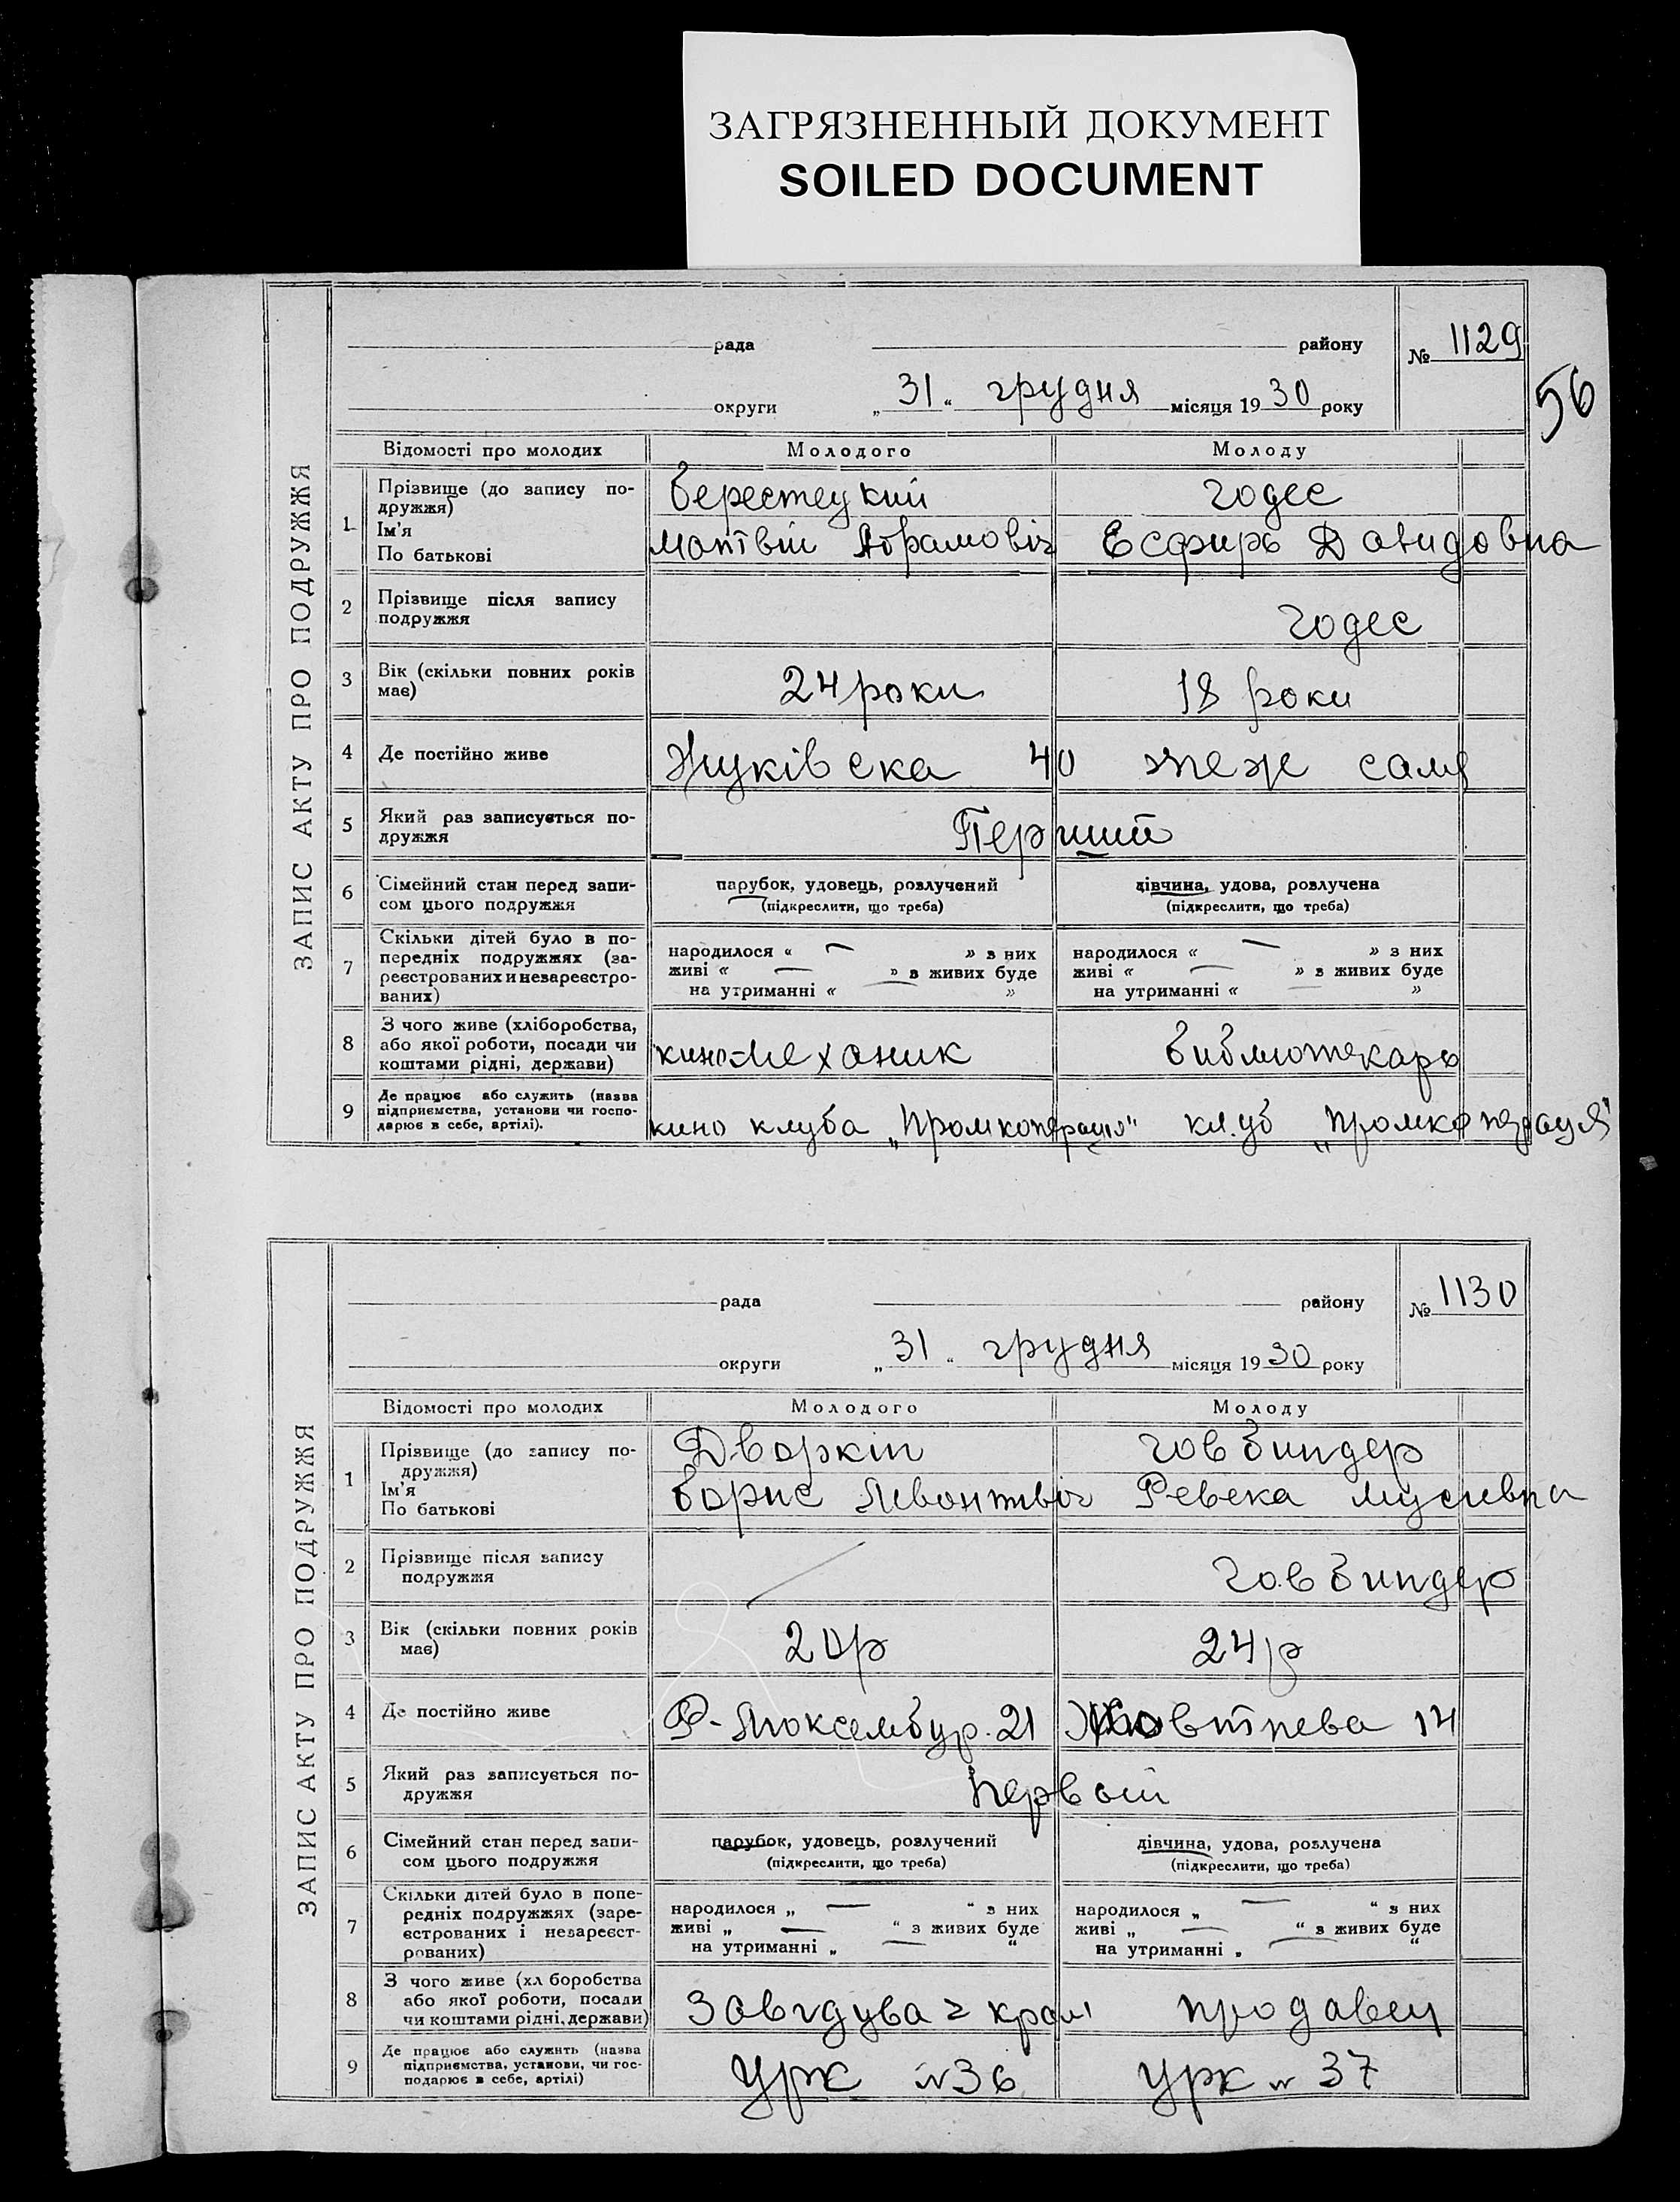 ЗАГРЯЗНЕННЫЙ ДОКУМЕНТ
SOILED DOCUMENT
ЗАПИС АКТУ ПРО ПОДРУЖЖЯ
рада району № 1129
56
округи „31“ грудня місяця 1930 року
Відомості про молодих Молодого Молоду
1 Прізвище (до запису по-
дружжя)
Ім'я
По батькові
Берестецкий Годес
Матвій Абрамовіч Есфирь Давидовна
2 Прізвище після запису
подружжя
Годес
3 Вік (скільки повних років
має)
24 роки 18 роки
4 Де постійно живе
Жуківска 40 теж сама
5 Який раз записується по-
дружжя
Перший
6 Сімейний стан перед запи-
сом цього подружжя
парубок, удовець, розлучений
(підкреслити, що треба)
дівчина, удова, розлучена
(підкреслити, що треба)
7 Скільки дітей було в по-
передніх подружжях (за-
реєстрованих и незареєстро-
ваних)
народилося « — » з них
живі « — » з живих буде
на утриманні « — »
народилося « — » з них
живі « — » з живих буде
на утриманні « — »
8 З чого живе (хліборобства,
або якої роботи, посади чи
коштами рідні, держави)
кино-механик библиотекарь
9 Де працює або служить (назва
підприємства, установи чи госпо-
дарює в себе, артілі).
кино клуба „Промкоперация" клуб „Промкоперация"
ЗАПИС АКТУ ПРО ПОДРУЖЖЯ
рада району № 1130
округи „31“ грудня місяця 1930 року
Відомості про молодих Молодого Молоду
1 Прізвище (до запису по-
дружжя)
Ім'я
По батькові
Дворкін Говбиндер
Борис Ревека
2 Прізвище після запису
подружжя
Говбиндер
3 Вік (скільки повних років
має)
20р 24р
4 Де постійно живе
Р-Люксембур. 21 14
5 Який раз записується по-
дружжя
Первый
6 Сімейний стан перед запи-
сом цього подружжя
парубок, удовець, розлучений
(підкреслити, що треба)
дівчина, удова, розлучена
(підкреслити, що треба)
7 Скільки дітей було в попе-
редніх подружжях (заре-
єстрованих і незареєст-
рованих)
народилося „ — “ з них
живі „ — “ з живих буде
на утриманні „ — “
народилося „ — “ з них
живі „ — “ з живих буде
на утриманні „ — “
8 З чого живе (хл боробства
або якої роботи, посади
чи коштами рідні, держави)
Завідувач крам продавец
9 Де працює або служить (назва
підприємства, установи, чи гос-
подарює в себе, артілі)
Урк № 36 Урк № 37